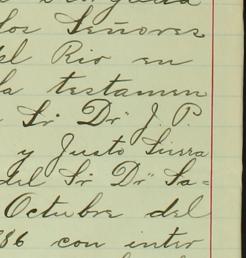 los Señores
del Rio en
la testamen
Sr. Dr. J. P.
y Justo Sierra
del Sr. Dr. Sa=
Octubre del
86 con inter